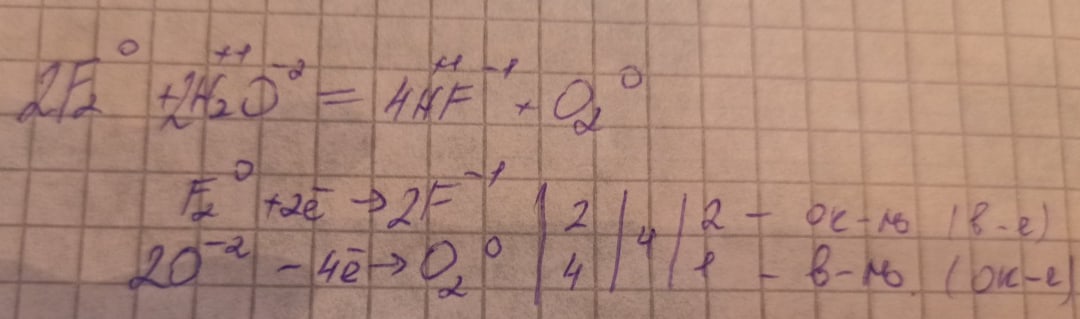 2F₂⁰ + 2H₂⁺¹O⁻² = 4H⁺¹F⁻¹ + O₂⁰
F₂⁰ + 2ē → 2F⁻¹ | 2 | 4 | 2 – ок-ль (в-е)
2O⁻² – 4ē → O₂⁰ | 4 | | 1 – в-ль (ок-е)